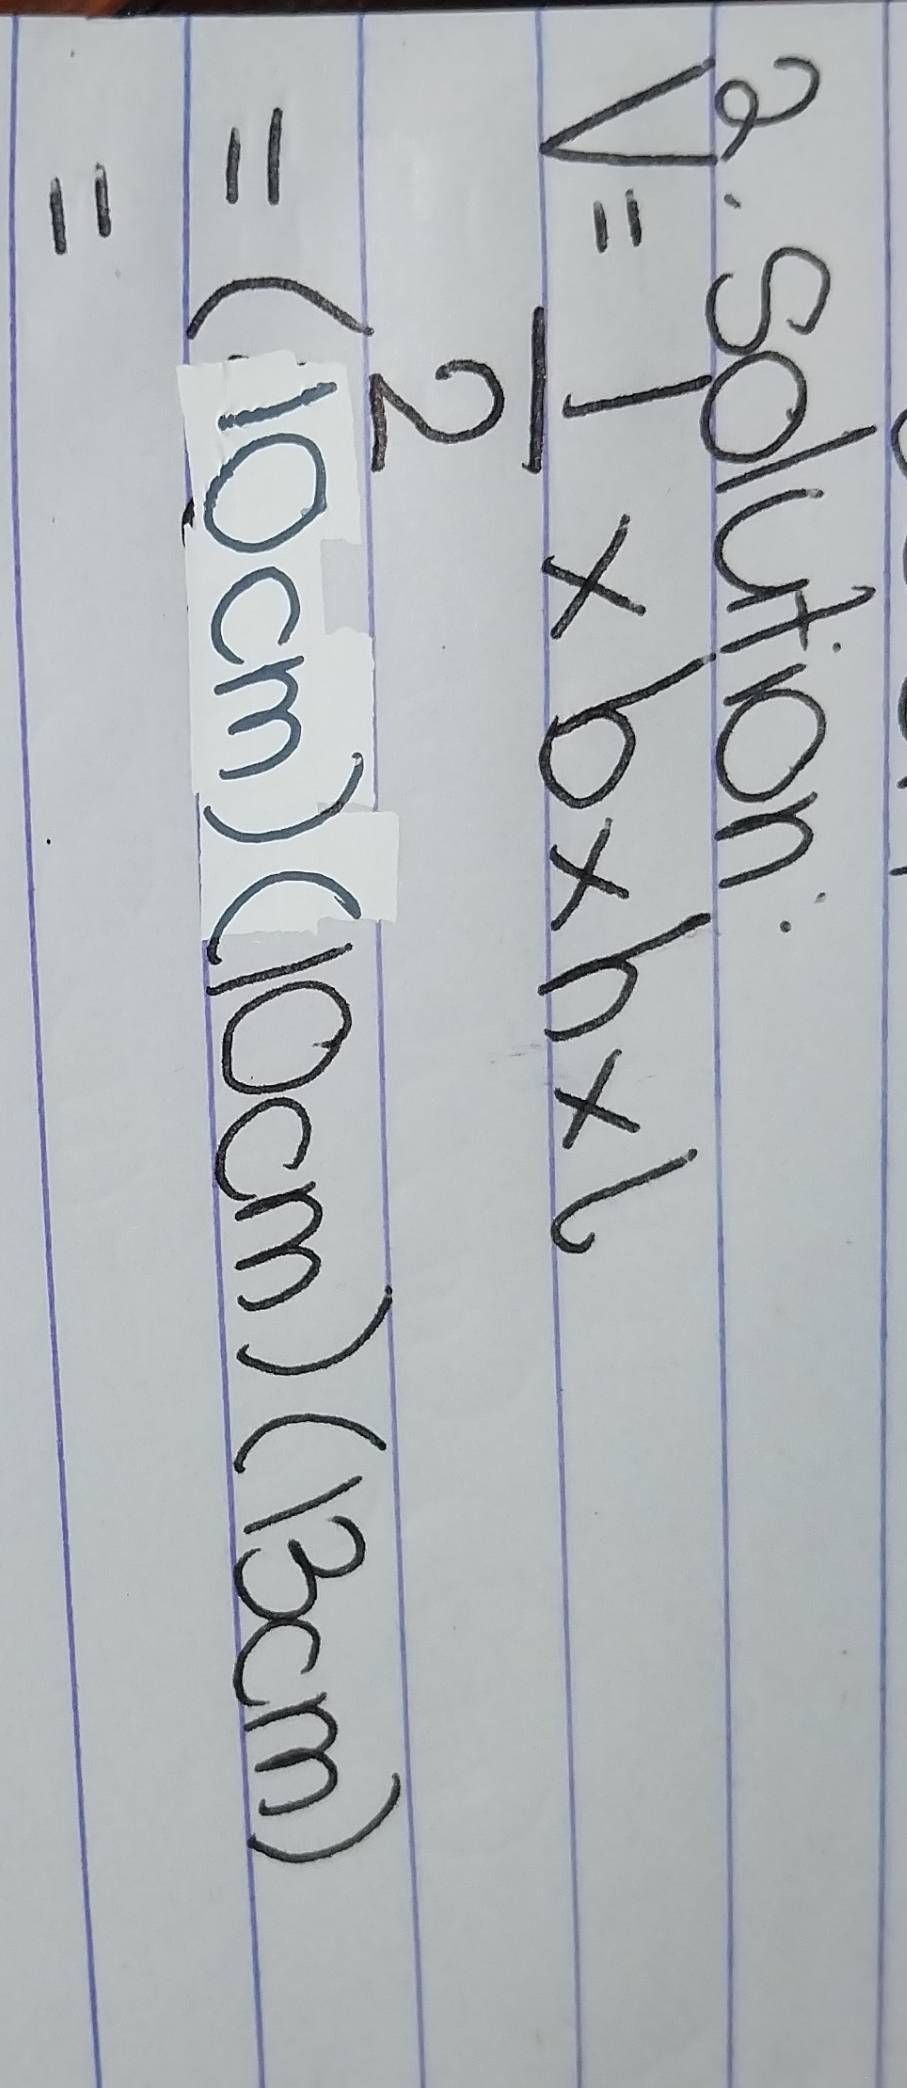 2. Solution:
V = 1/2 x b x h x l
= (10cm) (10cm) (13cm)
=